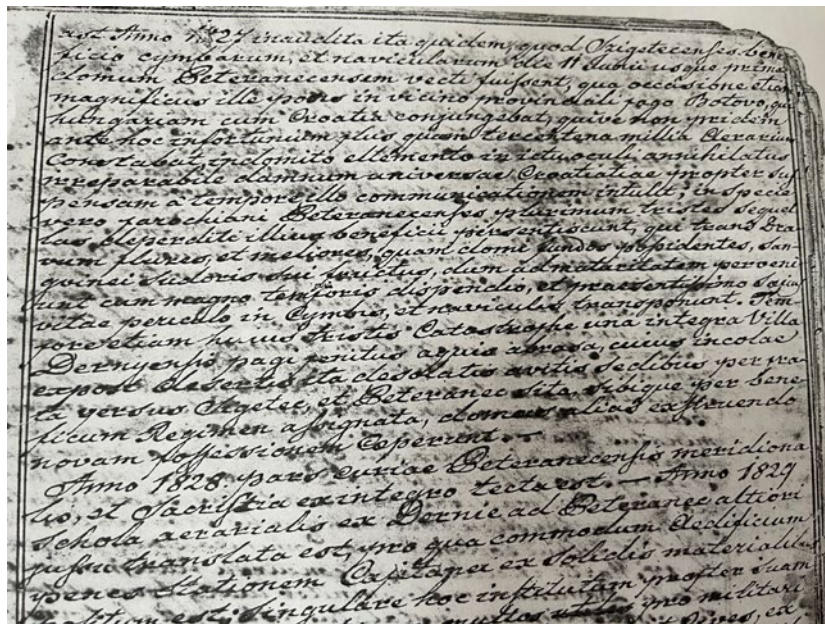 ast Anno 1827 inaudita ita quidem, quod Szigetecenses bene-
ficio cymbarum, et navicularum die 11 Junii usque prima
domum Peteranecensem vecti fuissent, qua occasione etiam
magnificus ille pons in vicino provinciali pago Botovo, qui
hungariam cum Croatia conjungebat, quive non pridem
ante hoc infortunium plus quam tercentena millia Aerarium
Constabat, indomito ellemento in ictu oculi annihilatus
irreparabile damnum universae Croatiae propter sus
pensam a tempore illo communicationem intulit, in specie
vero parochiani Peteranecenses plurimum tristes seque
las deperditi illius beneficii persentiscunt, qui trans Dra
vum plures, et meliores, quam domi fundos possidentes, san-
gvinei sudoris sui fructus, dum ad maturitatem perveni
unt cum magno temporis dispendio, et praesentissimo saepe
vitae periculo in Cymbis, et naviculis transponunt. Tem-
pore etiam hujus tristis Catastrophe una integra Villa
Dernyensis pagi penitus aquis abrasa, cuius incolae
expost desertis ita desolatis avitis sedibus per pra-
ta versus Sigetec, et Peteranec sita, sibique per bene-
ficum Regimen assignata, domus alias exstruendo
novam possessionem ceperunt. —
Anno 1828 pars curiae Peteranecensis meridiona
lis, et Sacristia ex integro tecta est. — Anno 1829
schola aerarialis ex Dernie ad Peteranec altiori
jussu translata est, pro qua commodum Aedificium
penes Stationem Capitanei ex solidis materialibus
est, Singulare hoc institutum propter suam
multos utiles pro militari
cives, ex